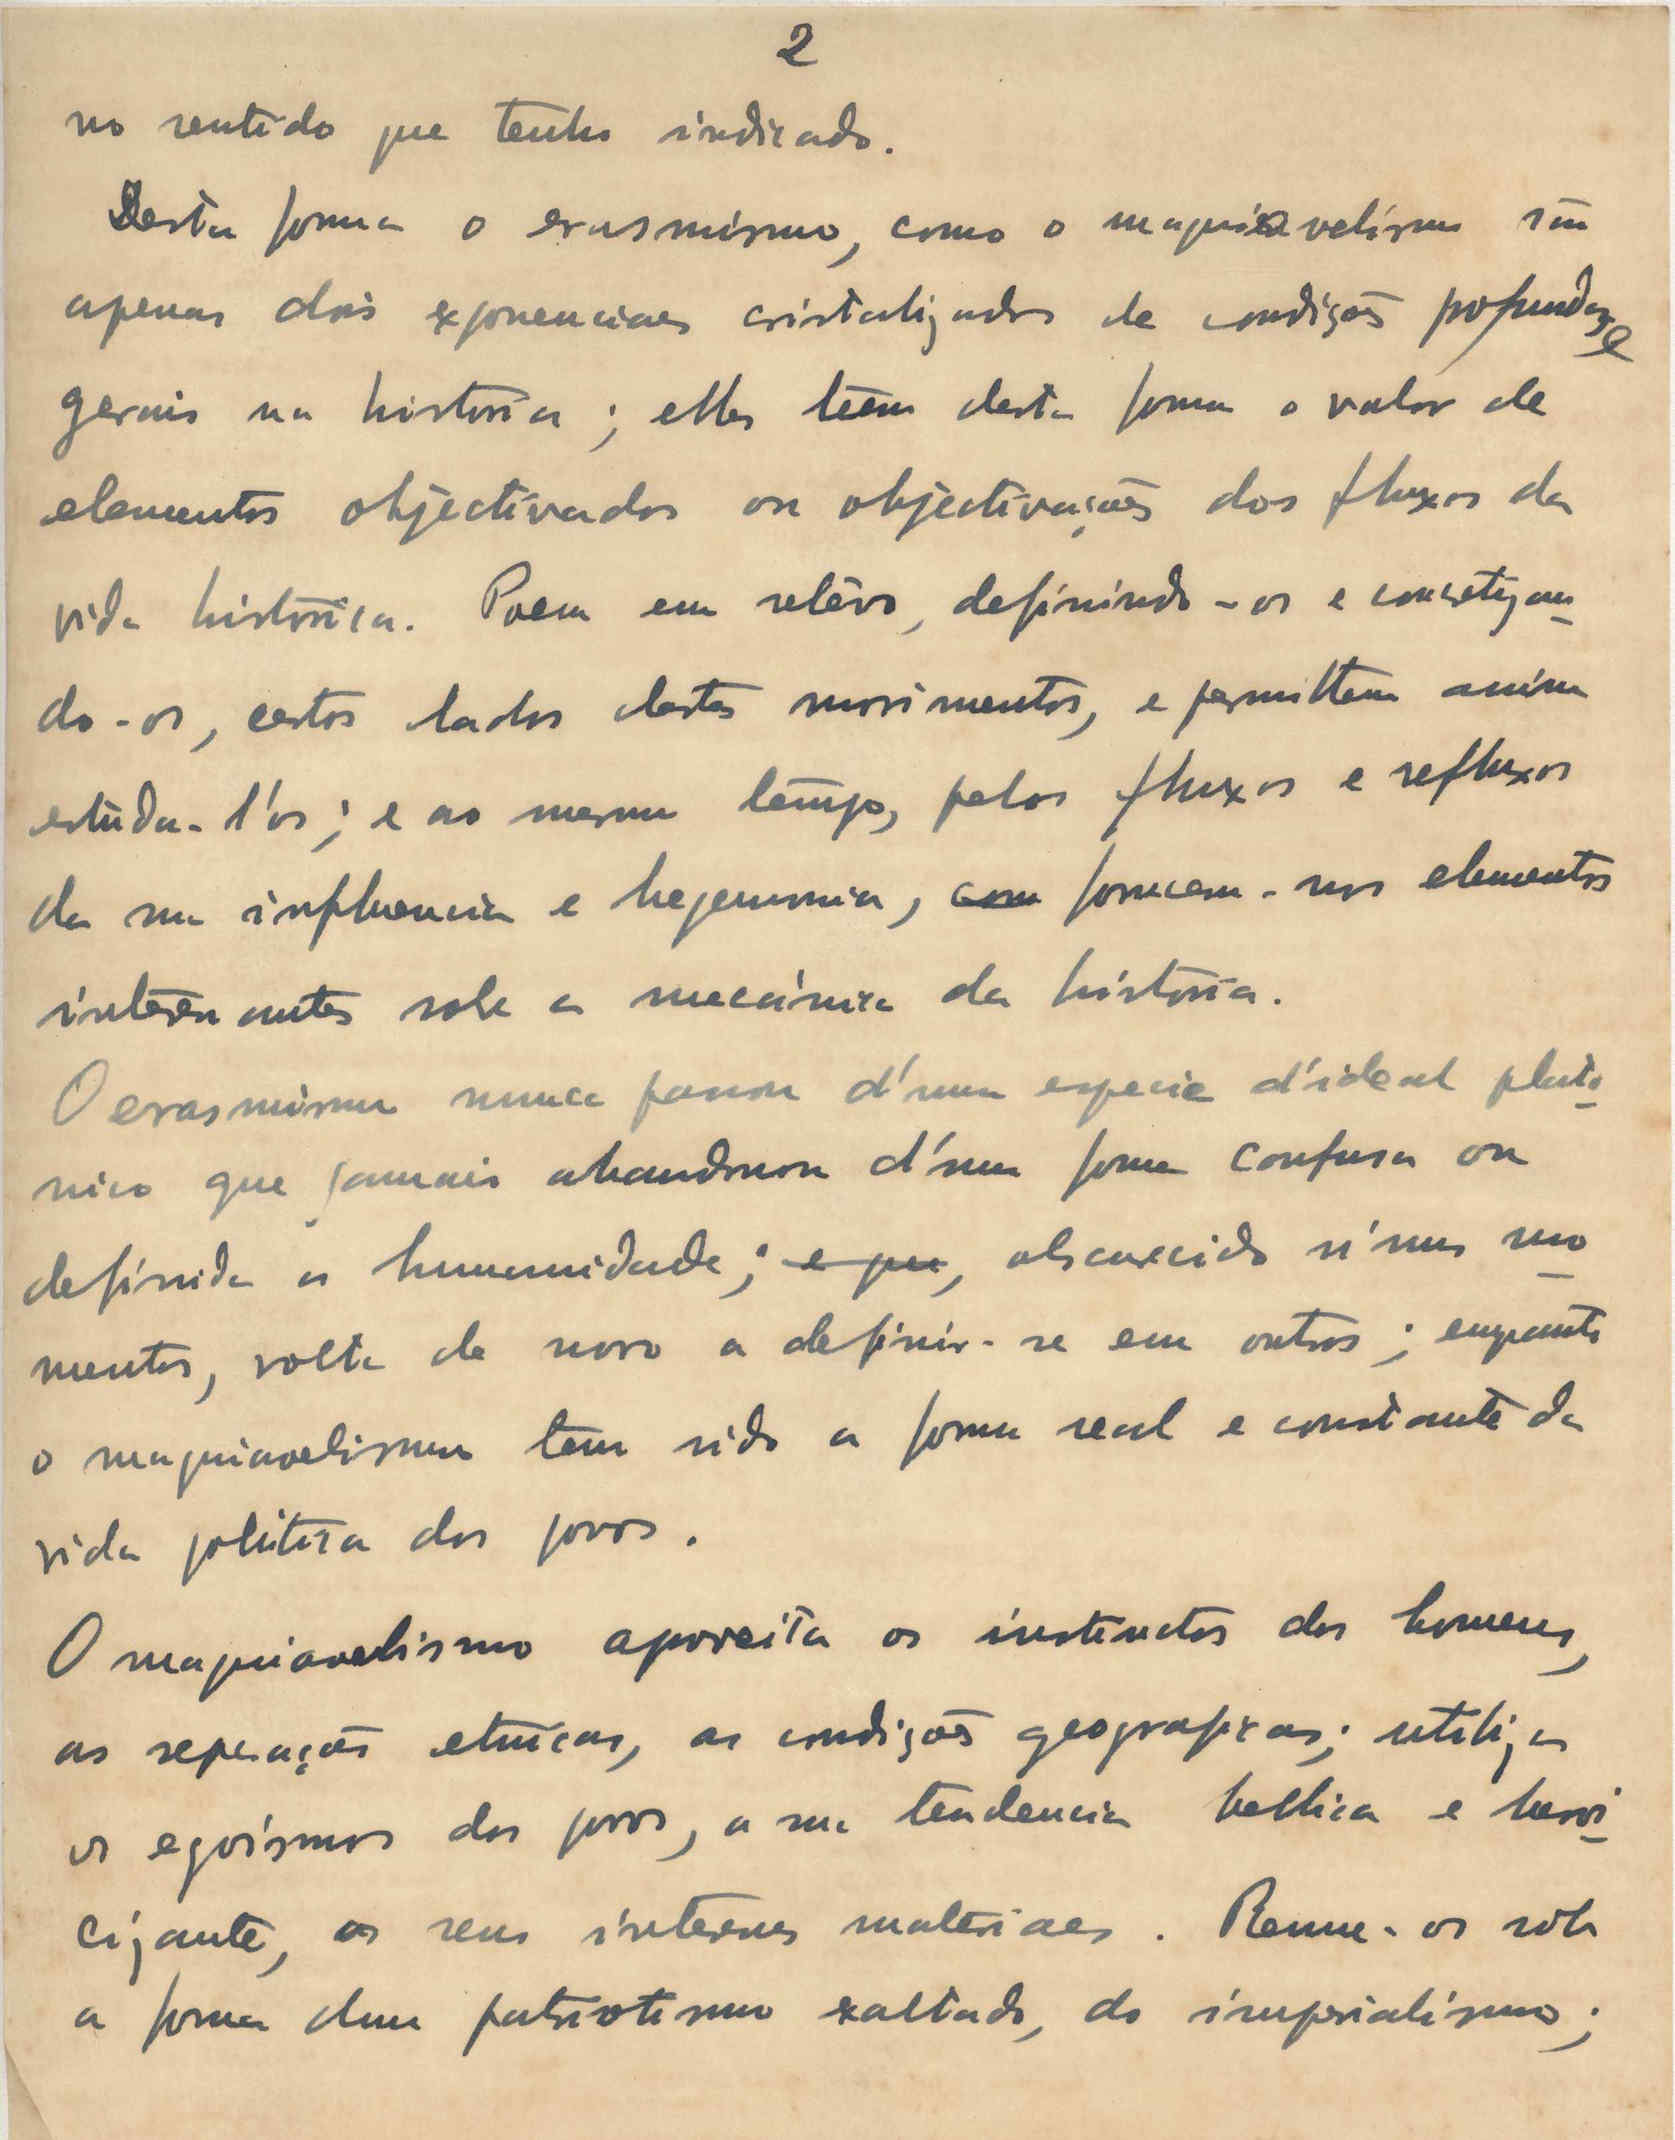 2
no sentido que tenho indicado.
Desta forma o erasmismo, como o maquiavelismo são
apenas dois exponenciaes cristalizados de condições pofundas e
gerais na história; elles teem desta forma o valor de
elementos objectivados ou objectivações dos fluxos da
vida histórica. Poem em relêvo, definindo-os e concretizan-
do-os, certos lados destes movimentos, e permittem assim
estuda-l'os; e ao mesmo tempo, pelos fluxos e refluxos
da sua influencia e hegemonia, com fornecem-nos elementos
interessantes sobre a mecánica da história.
O erasmismo nunca passou d'uma especie d'ideal plató-
nico que jamais abandonou d'uma forma confusa ou
definida a humanidade; e que, obscurecido n'uns mo-
mentos, volta de novo a definir-se em outros; enquanto
o maquiavelismo tem sido a forma real e constante da
vida politica dos povos.
O maquiavelismo aproveita os instinctos dos homens,
as separações etnicas, as condições geograficas; utiliza
os egoísmos dos povos, a sua tendencia bellica e heroi-
cizante, os seus interesses materiaes. Reune-os sob
a forma dum patriotismo exaltado, do imperialismo;